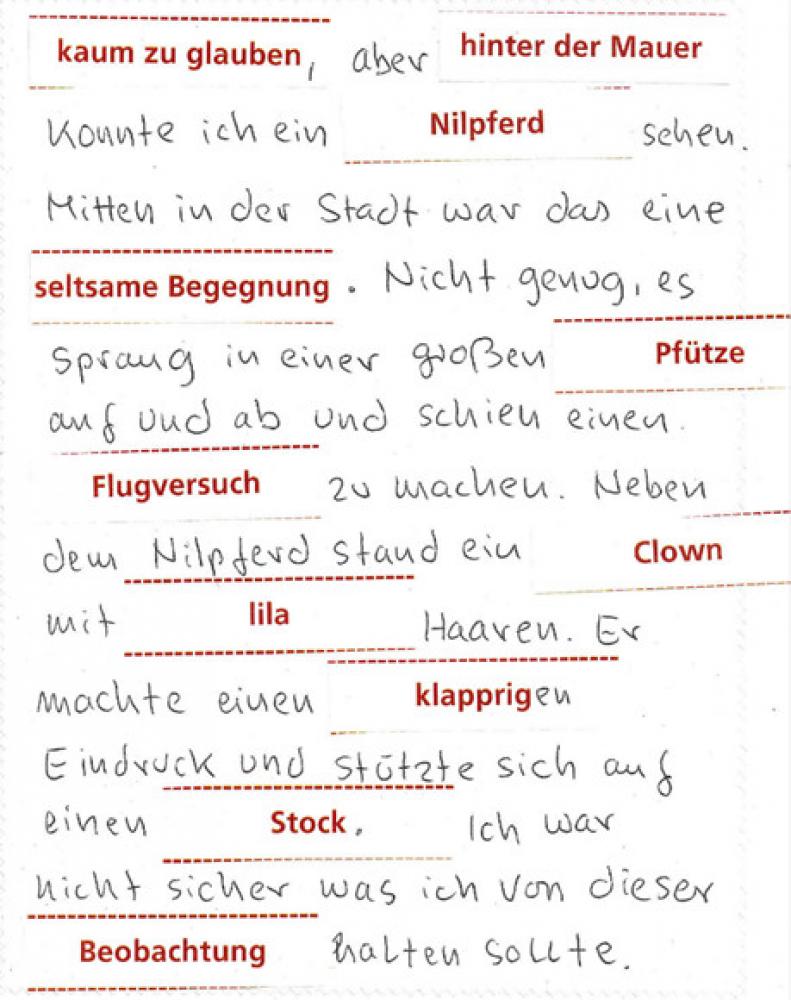 kaum zu glauben, aber hinter der Mauer
konnte ich ein Nilpferd sehen.
Mitten in der Stadt war das eine
seltsame Begegnung. Nicht genug, es
sprang in einer großen Pfütze
auf und ab und schien einen.
Flugversuch zu machen. Neben
dem Nilpferd stand ein Clown
mit lila Haaren. Er
machte einen klapprigen
Eindruck und stützte sich auf
einen Stock. Ich war
nicht sicher was ich von dieser
Beobachtung halten sollte.